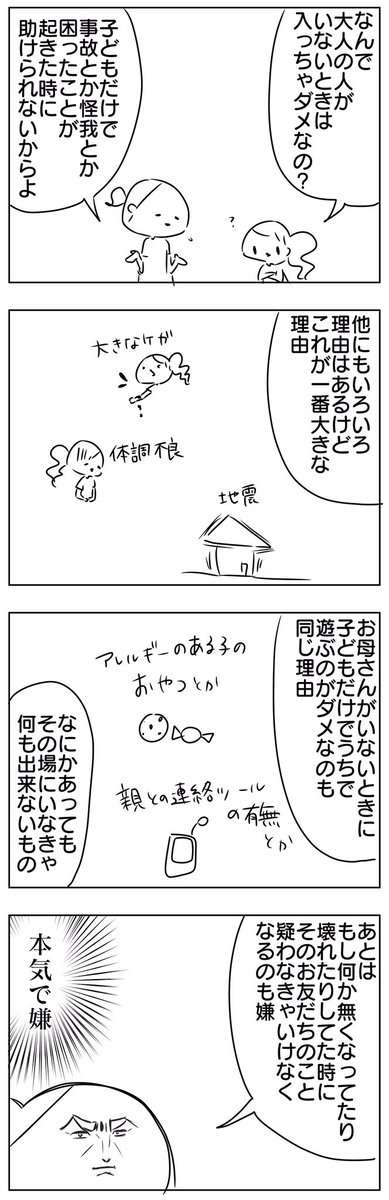 なんで
大人の人が
いないときは
入っちゃダメなの？
子どもだけで
事故とか怪我とか
困ったことが
起きた時に
助けられないからよ
?
他にもいろいろ
理由はあるけど
これが一番大きな
理由
大きなケガ
体調不良
地震
お母さんがいないときに
子どもだけでうちで
遊ぶのがダメなのも
同じ理由
アレルギーのある子の
おやつとか
親との連絡ツール
の有無
とか
なにかあっても
その場にいなきゃ
何も出来ないもの
あとは
もし何か無くなってたり
壊れたりしてた時に
そのお友だちのこと
疑わなきゃいけなく
なるのも嫌
本気で嫌